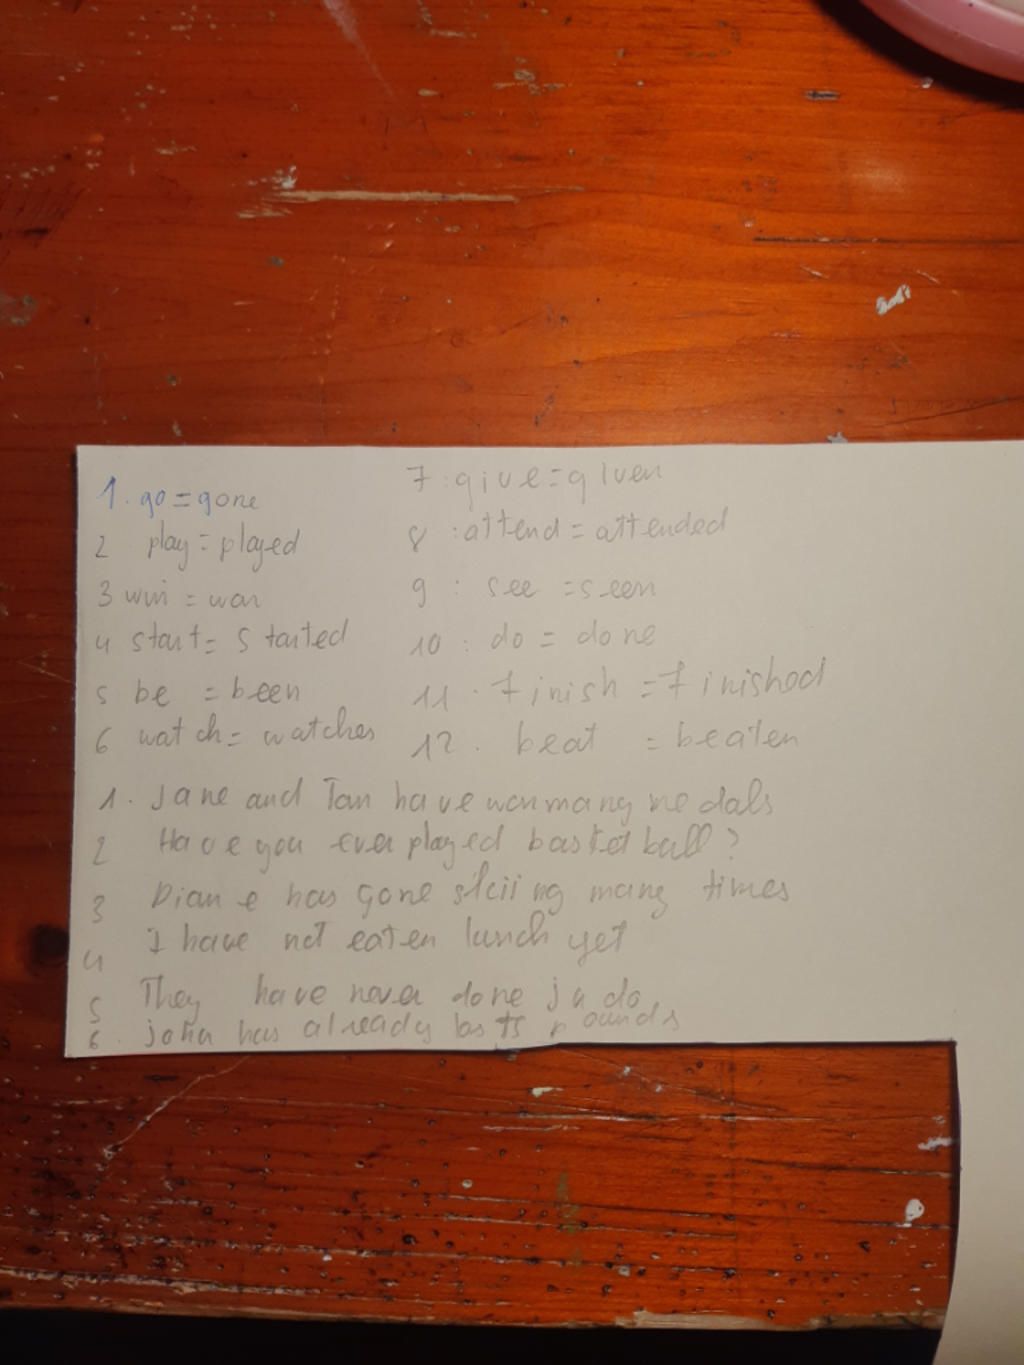 1. go = gone
2 play = played
3 win = won
4 start = started
5 be = been
6 watch = watches
7 : give = given
8 : attend = attended
9 : see = seen
10 : do = done
11 . Finish = Finished
12 . beat = beaten
1. Jane and Tom have won many medals
2 Have you ever played basketball?
3 Diane has gone skiing many times
4 I have not eaten lunch yet
5 They have never done judo
6. John has already lost 5 pounds